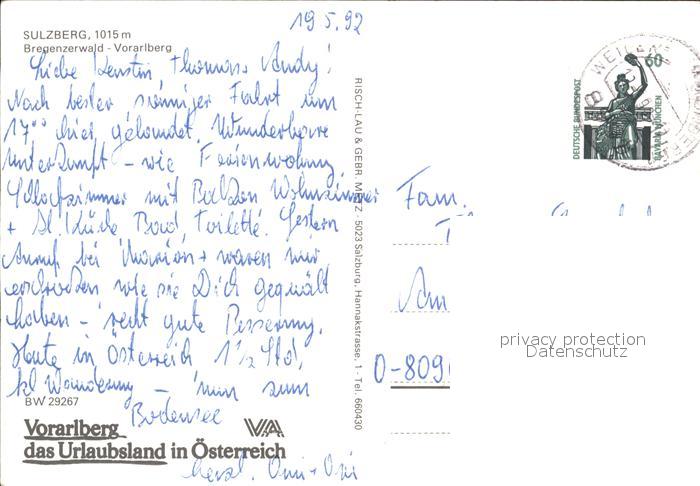 19.5.92
SULZBERG, 1015 m
Bregenzerwald - Vorarlberg
Liebe Kerstin, Thomas + Andy!
Nach bester sonniger Fahrt um
17⁰⁰ hier gelandet. Wunderbare
Unterkunft - wie Ferienwohnung,
Schlafzimmer mit Balkon Wohnzimmer
+ kl. Küche Bad, Toilette. Gestern
Anruf bei Marion + waren nur
erschrocken wie sie Dich gequält
haben - recht gute Besserung.
Heute in Österreich 1 1/2 Std.
kl Wanderung - nun zum
Bodensee
BW 29267
Vorarlberg VA
das Urlaubsland in Österreich
herzl. Omi + Opi
RISCH-LAU & GEBR. METZ · 5023 Salzburg, Hannakstrasse, 1 - Tel. 660430
DEUTSCHE BUNDESPOST
60
BAVARIA MÜNCHEN
WEILER
8
Fam.
Am
D-809
privacy protection
Datenschutz